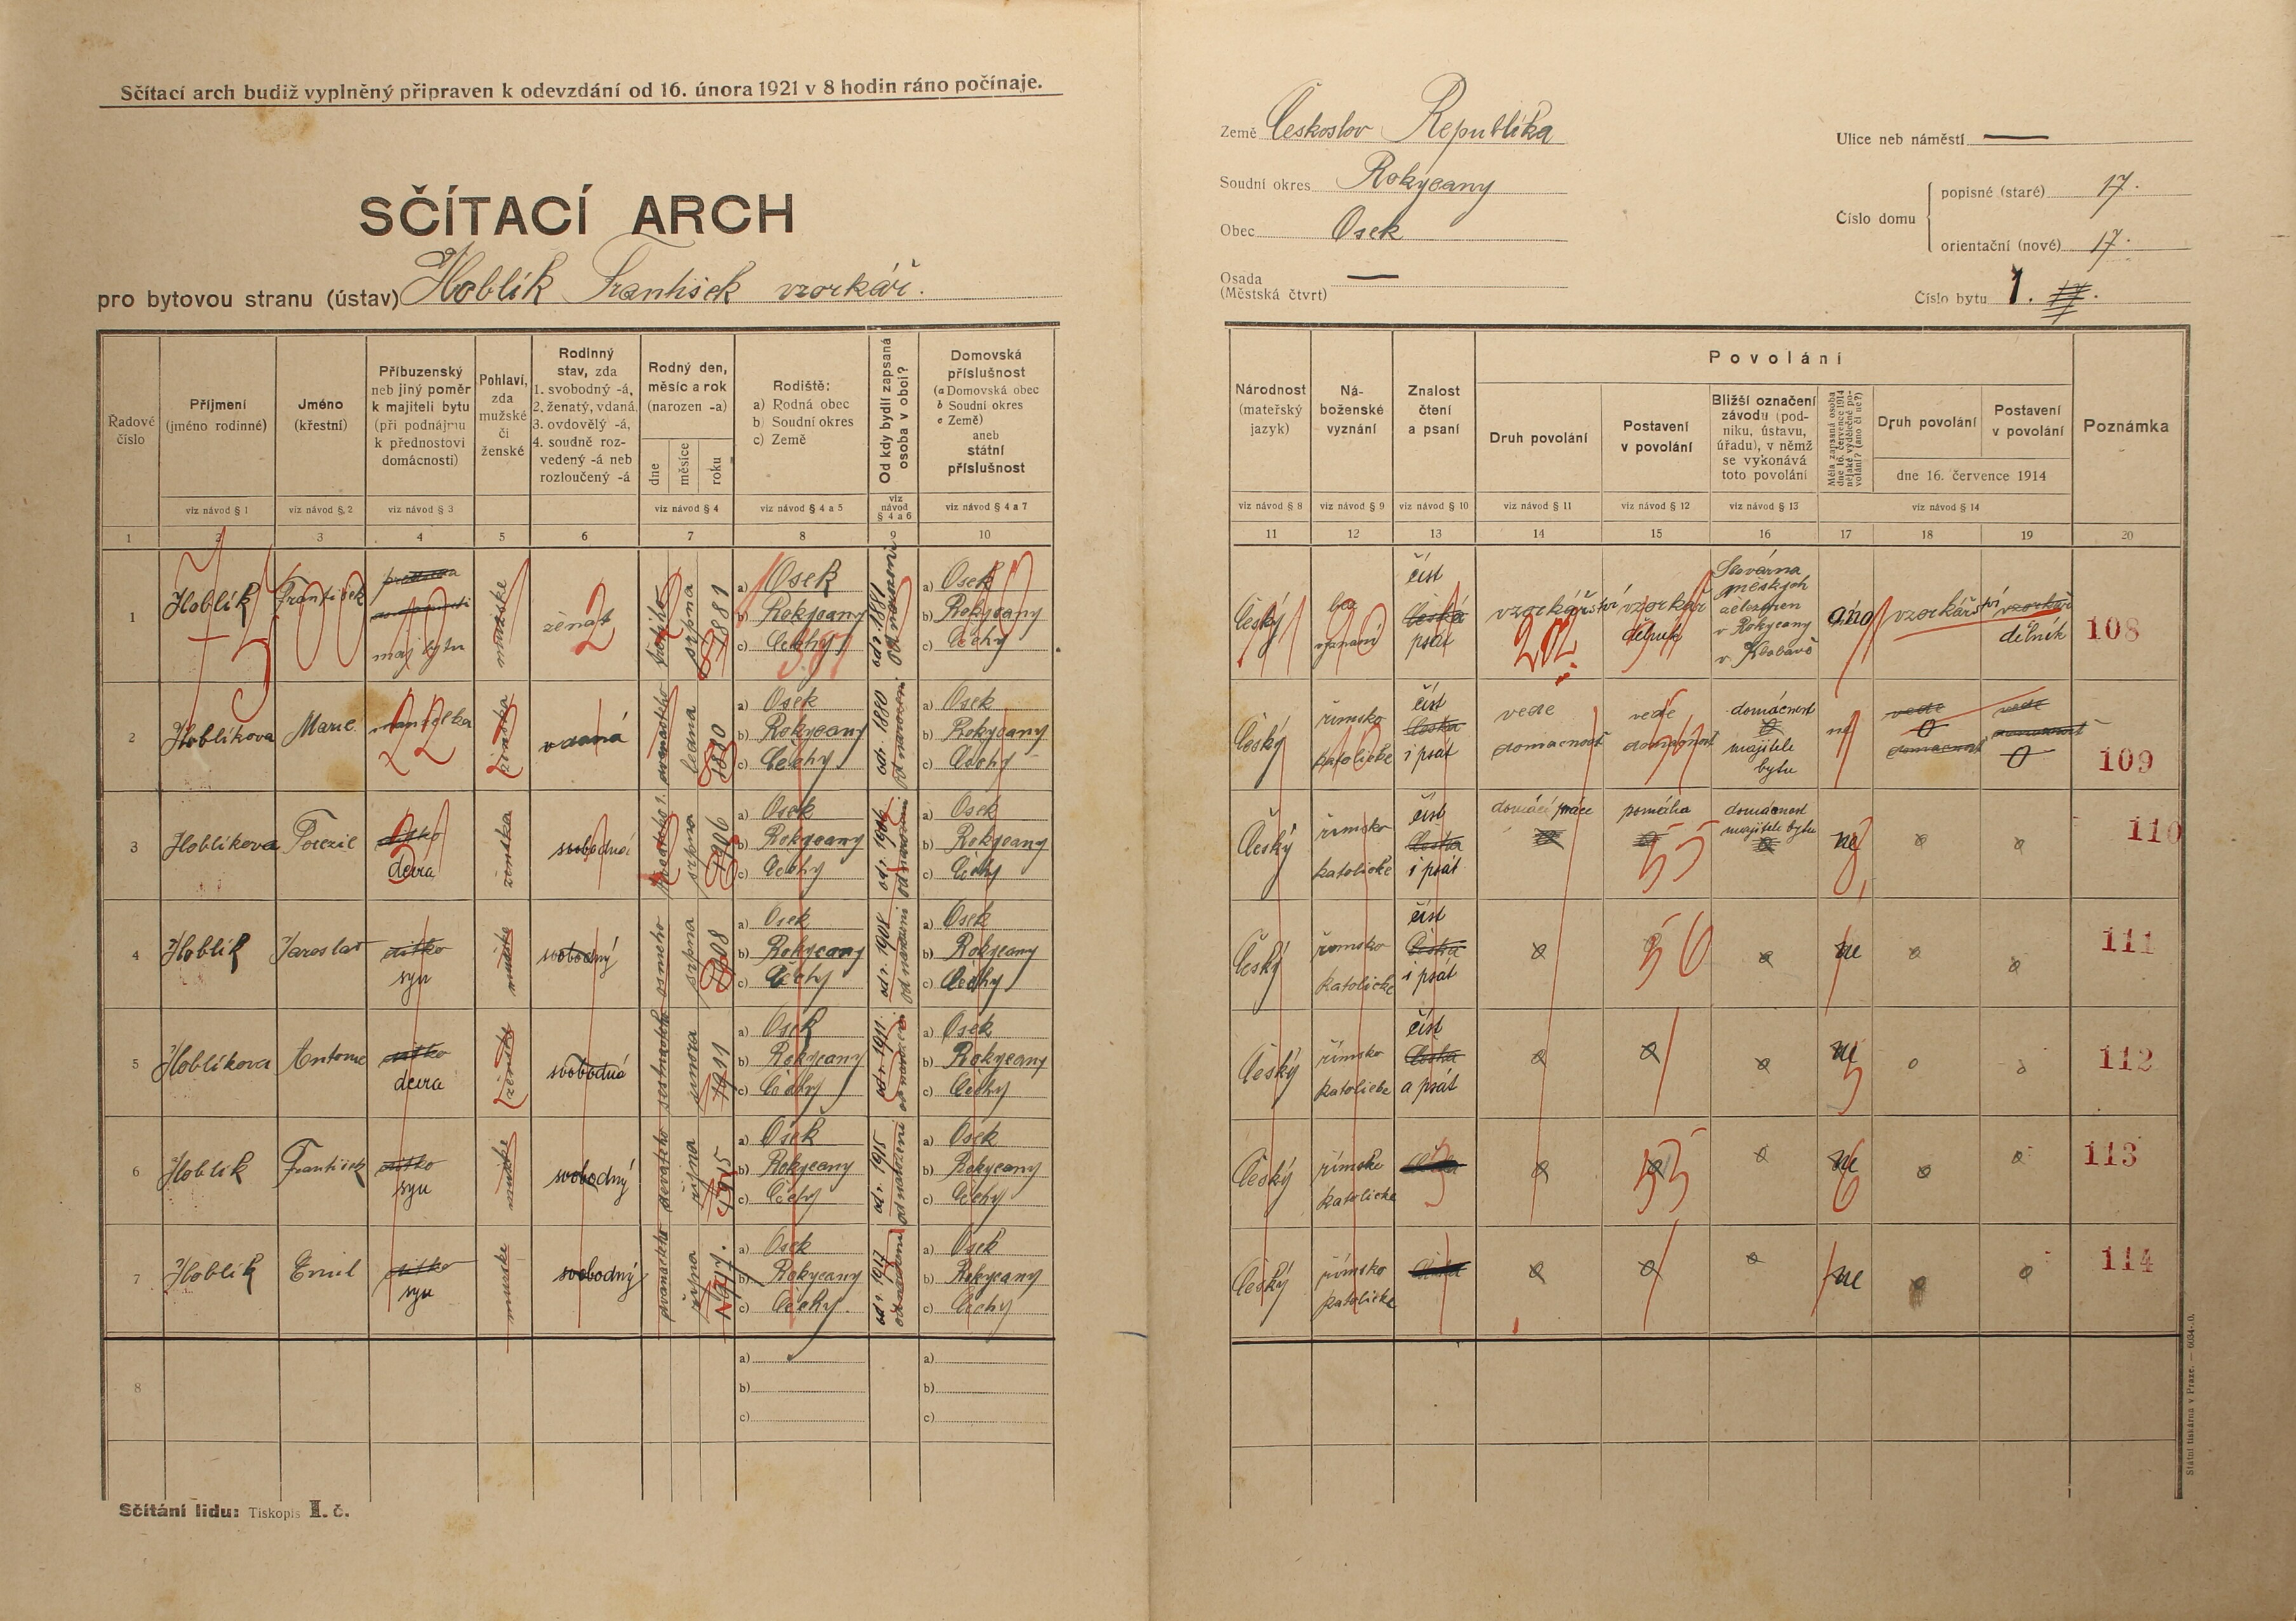 Sčítací arch budiž vyplněný připraven k odevzdání od 16. února 1921 v 8 hodin ráno počínaje.
SČÍTACÍ ARCH
pro bytovou stranu (ústav) Hoblík František vzorkář.
Země Českoslov Republika
Soudní okres Rokycany
Obec Osek
Osada —
(Městská čtvrt)
Ulice neb náměstí —
Číslo domu
popisné (staré) 17.
orientační (nové) 17.
Číslo bytu 1.
Řadové číslo
Příjmení (jméno rodinné)
Jméno (křestní)
Příbuzenský neb jiný poměr k majiteli bytu (při podnájmu k přednostovi domácnosti)
Pohlaví, zda mužské či ženské
Rodinný stav, zda 1. svobodný -á, 2. ženatý, vdaná, 3. ovdovělý -á, 4. soudně rozvedený -á neb rozloučený -á
Rodný den, měsíc a rok (narozen -a)
dne měsíce roku
Rodiště: a) Rodná obec b) Soudní okres c) Země
Od kdy bydlí zapsaná osoba v obci?
Domovská příslušnost (a Domovská obec b Soudní okres c Země) aneb státní příslušnost
viz návod § 1 viz návod § 2 viz návod § 3 viz návod § 4 viz návod § 4 a 5 viz návod § 4 a 6 viz návod § 4 a 7
1 2 3 4 5 6 7 8 10
Národnost (mateřský jazyk)
Náboženské vyznání
Znalost čtení a psaní
Povolání
Druh povolání
Postavení v povolání
Bližší označení závodu (podniku, ústavu, úřadu), v němž se vykonává toto povolání
Měla zapsaná osoba dne 16. července 1914 nějaké výdělečné povolání? (ano či ne?)
Druh povolání
Postavení v povolání
dne 16. července 1914
Poznámka
viz návod § 8 viz návod § 9 viz návod § 10 viz návod § 11 viz návod § 12 viz návod § 13 viz návod § 14
11 12 13 14 15 16 17 18 19 20
1 Hoblík František maj bytu mužské ženat srpna 1881 a) Osek b) Rokycany c) Čechy od r. 1881 od narození a) Osek b) Rokycany c) Čechy
Český bez vyznání číst psát vzorkářství vzorkář dělník Slovárna v Rokycany v Klabavě ano vzorkářství vzorkář dělník 108
2 Hoblíkova Marie manželka ženská vdaná ledna 1880 a) Osek b) Rokycany c) Čechy od r. 1880 od narození a) Osek b) Rokycany c) Čechy
Český římsko katolické číst i psát vede domacnost vede domacnost domácnost majitele bytu ne 0 0 109
3 Hoblíkova Terezie dcera ženska svobodná srpna 1906 a) Osek b) Rokycany c) Čechy od r. 1906 od narození a) Osek b) Rokycany c) Čechy
Český římsko katolické číst i psát domácí práce pomáha domácnost majitele bytu ne 0 0 110
4 Hoblík Jaroslav syn svobodný osmeho srpna 1908 a) Osek b) Rokycany c) Čechy od r. 1908 od narození a) Osek b) Rokycany c) Čechy
Český římsko katolické číst i psát 0 56 0 ne 0 0 111
5 Hoblíkova Antonie dcera ženská svobodná února 1911 a) Osek b) Rokycany c) Čechy od r. 1911 od narození a) Osek b) Rokycany c) Čechy
Český římsko katolické číst a psát 0 0 0 ne 0 0 112
6 Hoblík František syn mužské svobodný devateho října 1915 a) Osek b) Rokycany c) Čechy od r. 1915 od narození a) Osek b) Rokycany c) Čechy
Český římsko katolické 0 0 0 ne 0 0 113
7 Hoblík Emil syn mužské svobodný října 1917. a) Osek b) Rokycany c) Čechy od r. 1917 od narození a) Osek b) Rokycany c) Čechy
Český římsko katolické 0 0 0 ne 0 0 114
8 a) b) c) a) b) c)
Sčítání lidu: Tiskopis I. č.
Státní tiskárna v Praze.